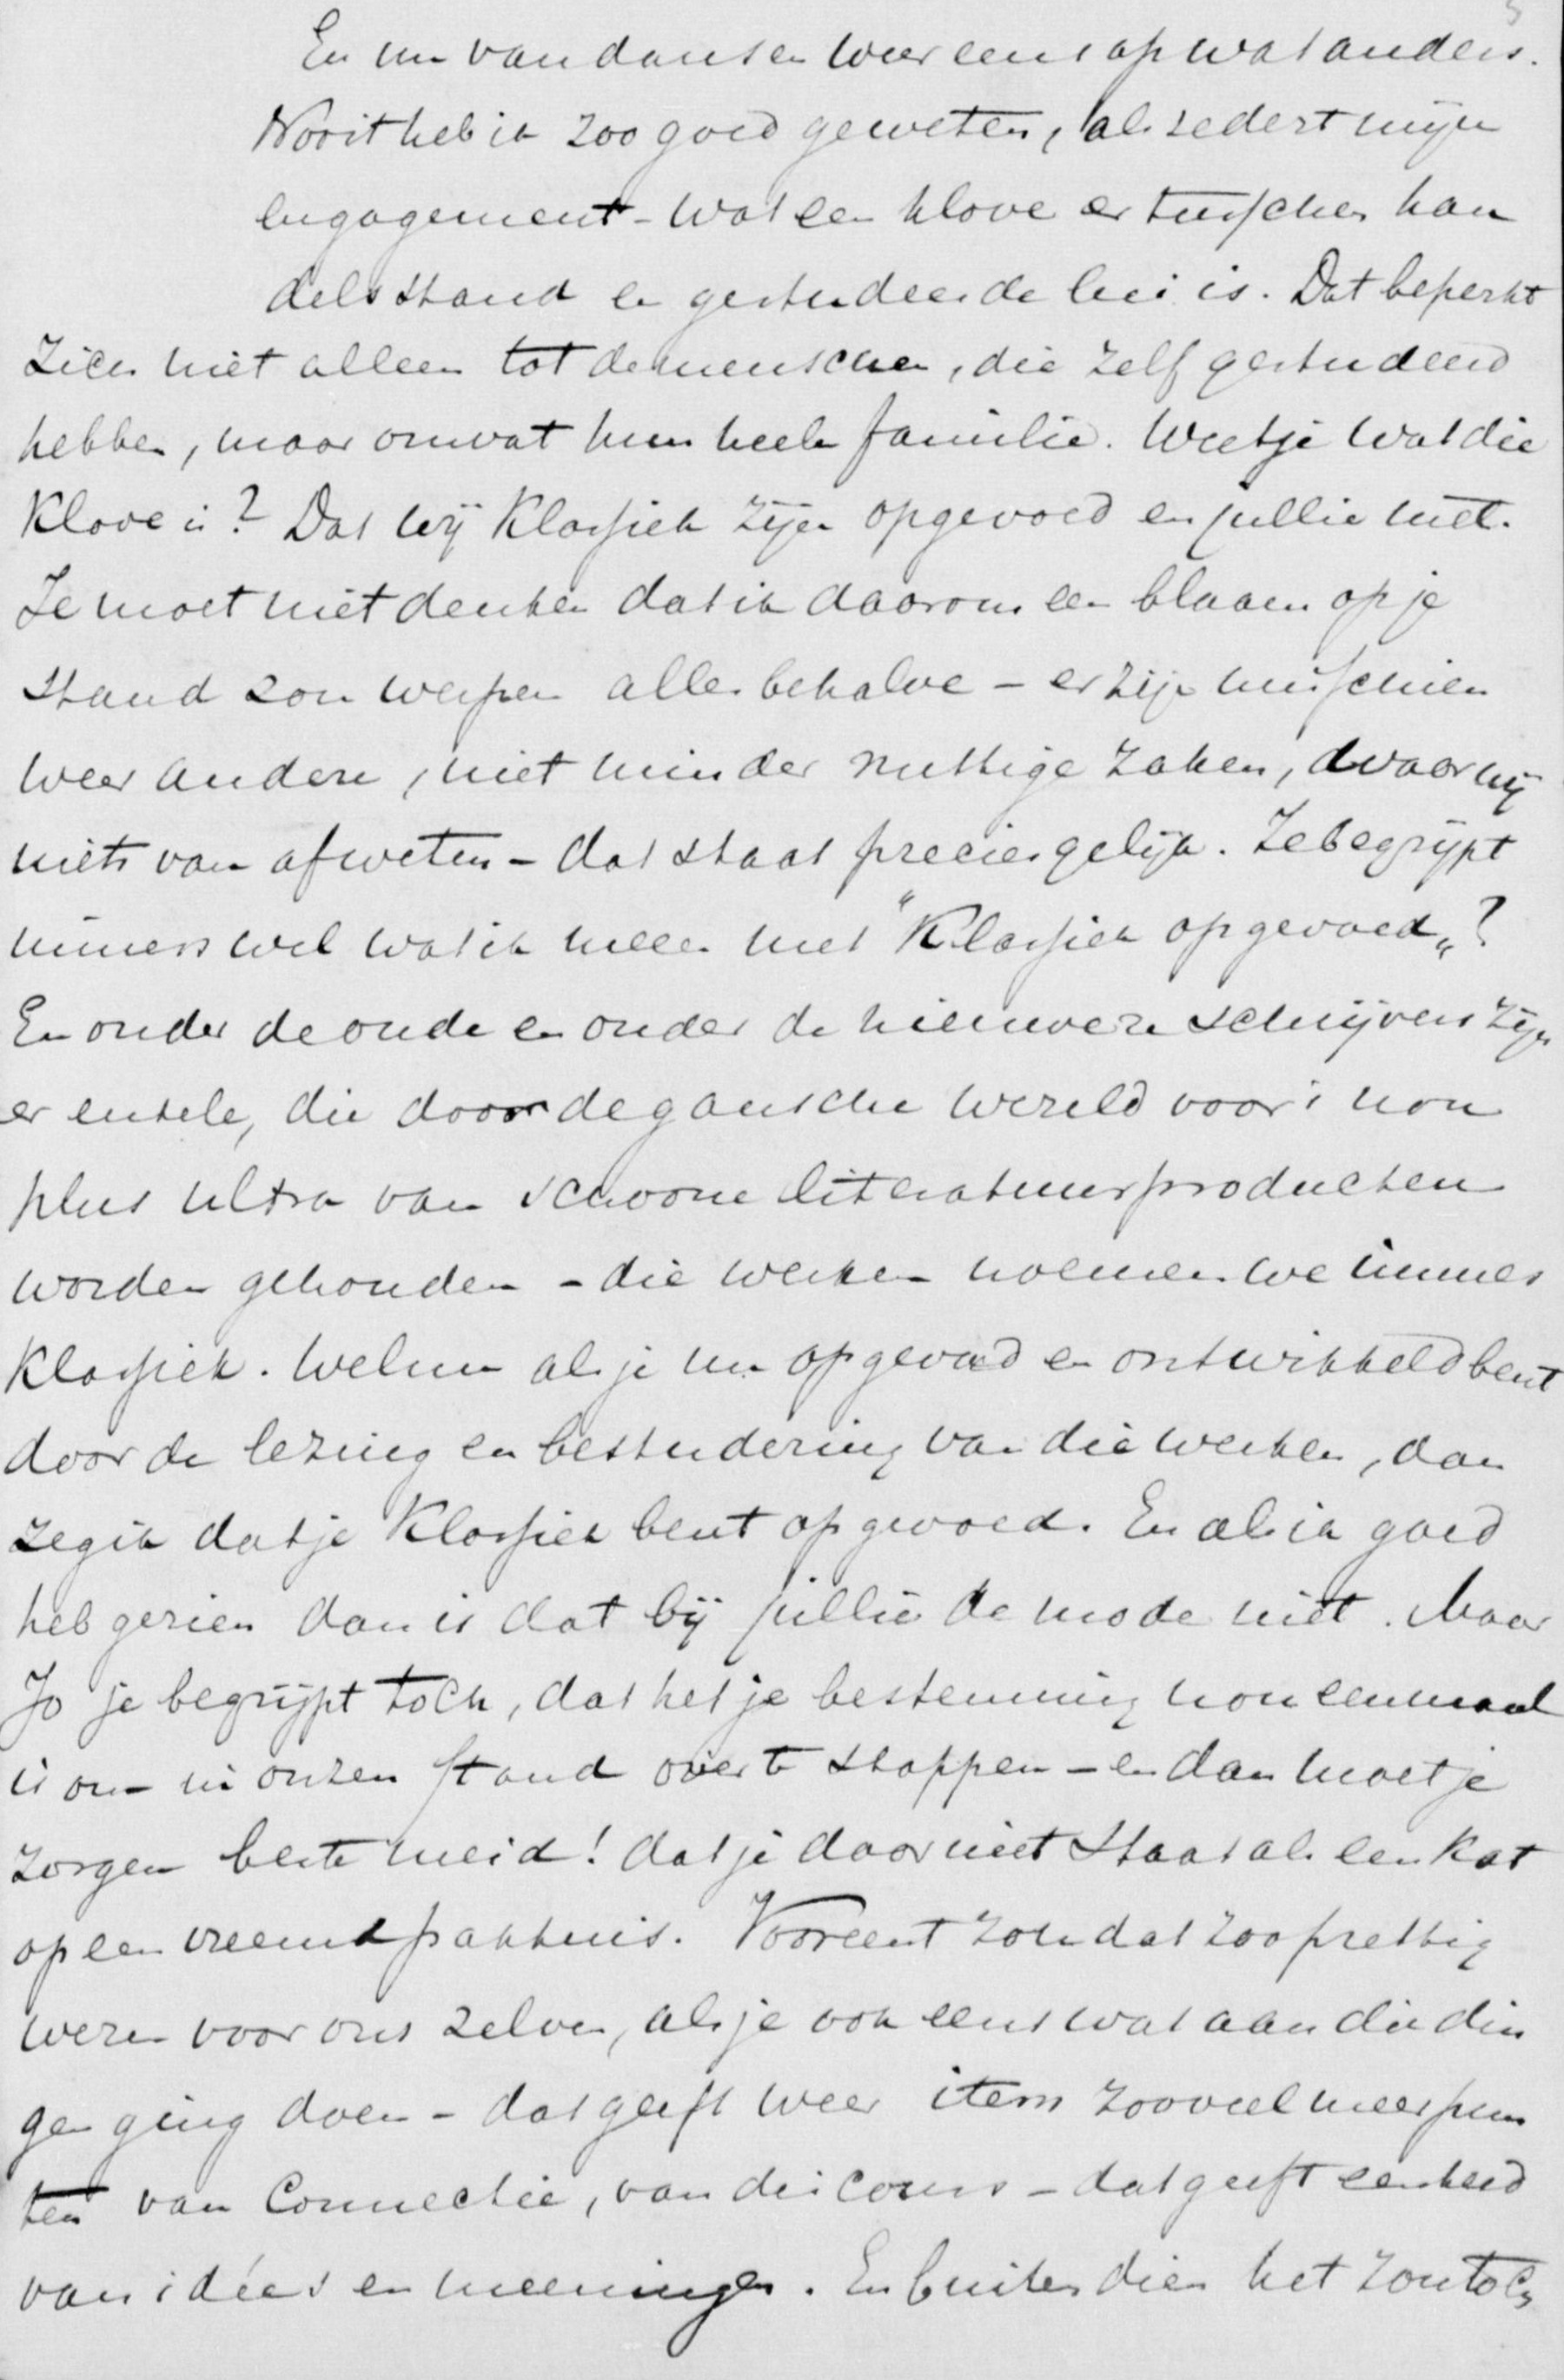 5
En nu van dansen weer eens op wat anders.
Nooit heb ik zoo goed geweten, als sedert mijn
engagement - wat een klove er tusschen han
delsstand en gestudeerde lui is. Dat beperkt
zich niet alleen tot de menschen, die zelf gestudeerd
hebben, maar omvat hun heele familie. Weet je wat die
klove is? Dat wij klassiek zijn opgevoed en jullie niet.
Je moet niet denken dat ik daarom een blaam op je
stand zou werpen allesbehalve - er zijn misschien
weer andere, niet minder nuttige zaken, waar wij
niets van afweten - dat staat precies gelijk. Je begrijpt
immers wel wat ik meen met "klassiek opgevoed„?
En onder de oude en onder de nieuwere schrijvers zijn
er enkele, die door de gansche wereld voor 't non
plus ultra van schoone literatuurproducten
worden gehouden - die werken noemen we immers
klassiek. Welnu als je nu opgevoed en ontwikkeld bent
door de lezing en bestudering van die werken, dan
zeg ik dat je klassiek bent opgevoed. En als ik goed
heb gezien dan is dat bij jullie de mode niet. Maar
Jo je begrijpt toch, dat het je bestemming nou eenmaal
is om in onzen stand over te stappen - en dan moet je
zorgen beste meid! dat je daar niet staat als een kat
op een vreemd pakhuis. Vooreerst zou dat zoo prettig
wezen voor ons zelven, als je ook eens wat aan die din
gen ging doen - dat geeft weer item zooveel meer pun
ten van connectie, van discours - dat geeft eenheid
van idées en meeningen. En buitendien het zou toch